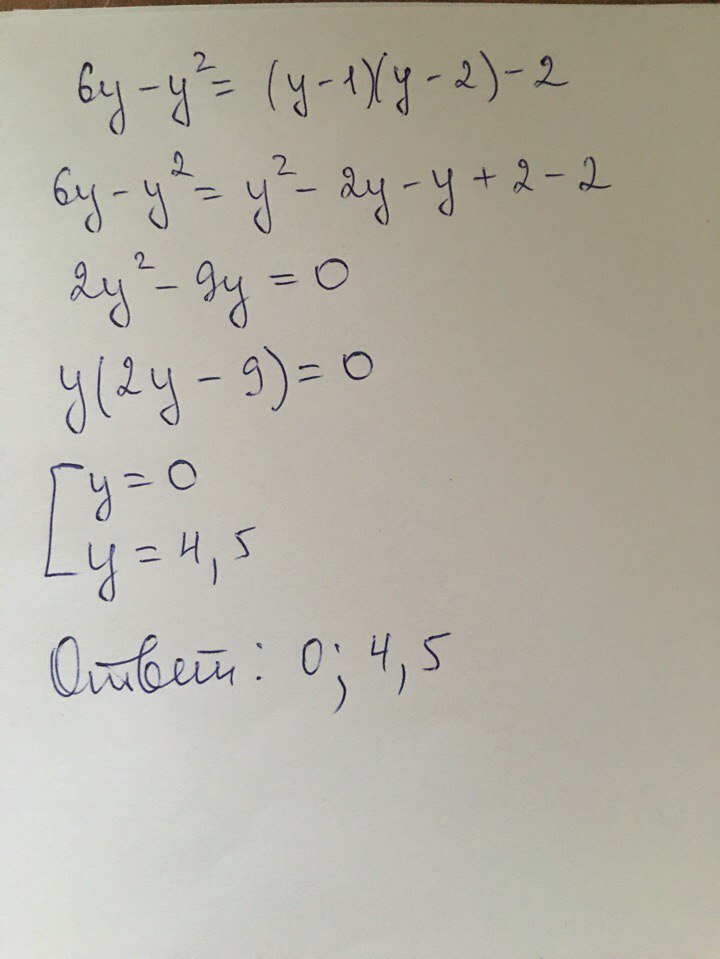 6y - y² = (y - 1)(y - 2) - 2
6y - y² = y² - 2y - y + 2 - 2
2y² - 9y = 0
y(2y - 9) = 0
[ y = 0
y = 4,5
Ответ: 0; 4,5